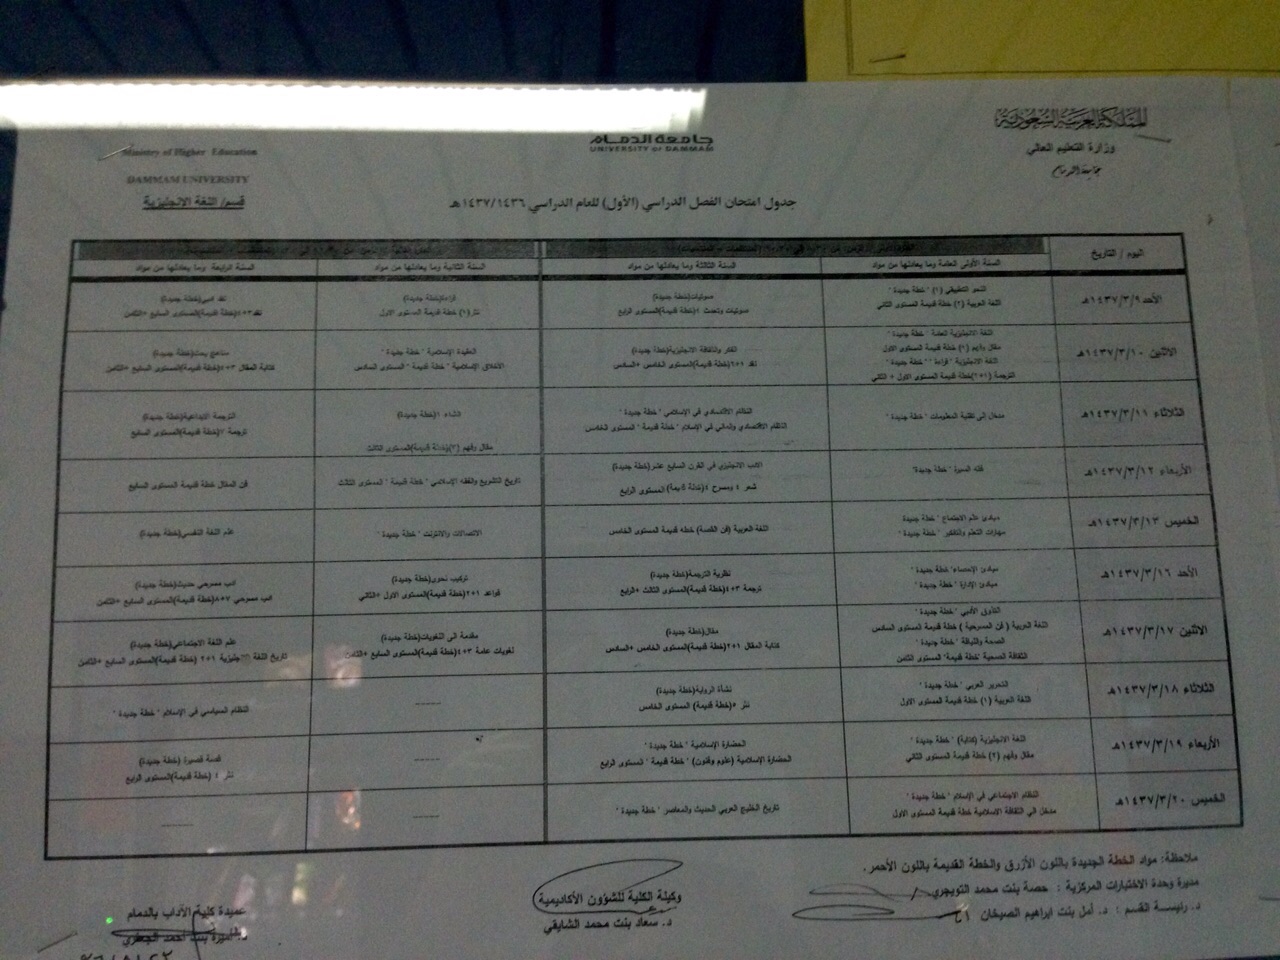 المملكة العربية السعودية
وزارة التعليم العالي
جامعة الدمام
جامعة الدمام
UNIVERSITY OF DAMMAM
Ministry of Higher Education
DAMMAM UNIVERSITY
قسم/ اللغة الإنجليزية
جدول امتحان الفصل الدراسي (الأول) للعام الدراسي ١٤٣٧/١٤٣٦هـ
اليوم / التاريخ
السنة الأولى العامة وما يعادلها من مواد
السنة الثالثة وما يعادلها من مواد
السنة الثانية وما يعادلها من مواد
السنة الرابعة وما يعادلها من مواد
الأحد ١٤٣٧/٣/٩هـ
النحو التطبيقي (١) " خطة جديدة "
اللغة العربية (٢) خطة قديمة المستوى الثاني
صوتيات(خطة جديدة)
صوتيات وتحدث ٤(خطة قديمة)المستوى الرابع
قراءة(خطة جديدة)
نثر(١) خطة قديمة المستوى الأول
نقد ادبي(خطة جديدة)
نقد٤٥٣(خطة قديمة)المستوى السابع +الثامن
الاثنين ١٤٣٧/٣/١٠هـ
اللغة الانجليزية العامة " خطة جديدة "
مقال وفهم (١) خطة قديمة المستوى الأول
اللغة الانجليزية " قراءة " " خطة جديدة "
الترجمة (٢٥١)خطة قديمة المستوى الاول + الثاني
الفكر والثقافة الانجليزية(خطة جديدة)
نقد ٢٥١(خطة قديمة)المستوى الخامس +السادس
العقيدة الإسلامية " خطة جديدة "
الاخلاق الإسلامية " خطة قديمة " المستوى السادس
مناهج بحث(خطة جديدة)
كتابة المقال ٤٥٣(خطة قديمة)المستوى السابع +الثامن
الثلاثاء ١٤٣٧/٣/١١هـ
مدخل إلى تقنية المعلومات " خطة جديدة "
النظام الاقتصادي في الإسلامي " خطة جديدة "
النظام الاقتصادي والمالي في الإسلام " خطة قديمة " المستوى الخامس
انشاء ١(خطة جديدة)
مقال وفهم (٣)(خطة قديمة)المستوى الثالث
الترجمة الابداعية(خطة جديدة)
ترجمة ٧(خطة قديمة)المستوى السابع
الأربعاء ١٤٣٧/٣/١٢هـ
فقه السيرة " خطة جديدة"
الادب الانجليزي في القرن السابع عشر(خطة جديدة)
شعر ٤ ومسرح ٤(خطة قديمة) المستوى الرابع
تاريخ التشريع والفقه الإسلامي " خطة قديمة " المستوى الثالث
فن المقال خطة قديمة المستوى السابع
الخميس ١٤٣٧/٣/١٣هـ
مبادئ علم الاجتماع " خطة جديدة
مهارات التعلم والتفكير " خطة جديدة "
اللغة العربية (فن القصة) خطه قديمة المستوى الخامس
الاتصالات والانترنت " خطة جديدة "
علم اللغة النفسي(خطة جديدة)
الأحد ١٤٣٧/٣/١٦هـ
مبادئ الإحصاء" خطة جديدة "
مبادئ الإدارة " خطة جديدة "
نظرية الترجمة(خطة جديدة)
ترجمة ٤٥٣(خطة قديمة)المستوى الثالث +الرابع
تركيب نحوي(خطة جديدة)
قواعد ٢٥١(خطة قديمة)المستوى الاول +الثاني
ادب مسرحي حديث(خطة جديدة)
ادب مسرحي ٨٥٧(خطة قديمة)المستوى السابع +الثامن
الاثنين ١٤٣٧/٣/١٧هـ
التذوق الأدبي " خطة جديدة "
اللغة العربية ( فن المسرحية ) خطة قديمة المستوى السادس
الصحة واللياقة " خطة جديدة "
الثقافة الصحية "خطة قديمة" المستوى الثامن
مقال(خطة جديدة)
كتابة المقال ٢٥١(خطة قديمة)المستوى الخامس +السادس
مقدمة الى اللغويات(خطة جديدة)
لغويات عامة ٤٥٣(خطة قديمة)المستوى السابع +الثامن
علم اللغة الاجتماعي(خطة جديدة)
تاريخ اللغة الانجليزية ٢٥١ (خطة قديمة)المستوى السابع +الثامن
الثلاثاء ١٤٣٧/٣/١٨هـ
التحرير العربي " خطة جديدة "
اللغة العربية (١) خطة قديمة المستوى الاول
نشأة الرواية(خطة جديدة)
نثر ٥(خطة قديمة) المستوى الخامس
-----
النظام السياسي في الإسلام " خطة جديدة "
الأربعاء ١٤٣٧/٣/١٩هـ
اللغة الانجليزية (كتابة) " خطة جديدة "
مقال وفهم (٢) خطة قديمة المستوى الثاني
الحضارة الإسلامية " خطة جديدة "
الحضارة الإسلامية (علوم وفنون) " خطة قديمة " المستوى الرابع
-----
قصة قصيرة (خطة جديدة)
نثر ٤ (خطة قديمة)المستوى الرابع
الخميس ١٤٣٧/٣/٢٠هـ
النظام الاجتماعي في الإسلام " خطة جديدة "
مدخل الى الثقافة الاسلامية خطة قديمة المستوى الاول
تاريخ الخليج العربي الحديث والمعاصر " خطة جديدة "
-----
------
ملاحظة: مواد الخطة الجديدة باللون الأزرق والخطة القديمة باللون الأحمر.
مديرة وحدة الاختبارات المركزية : حصة بنت محمد التويجري
د. رئيسة القسم : د. أمل بنت ابراهيم الصيخان
وكيلة الكلية للشؤون الأكاديمية
د. سعاد بنت محمد الشايقي
عميدة كلية الآداب بالدمام
د. أميرة بنت أحمد الجعفري